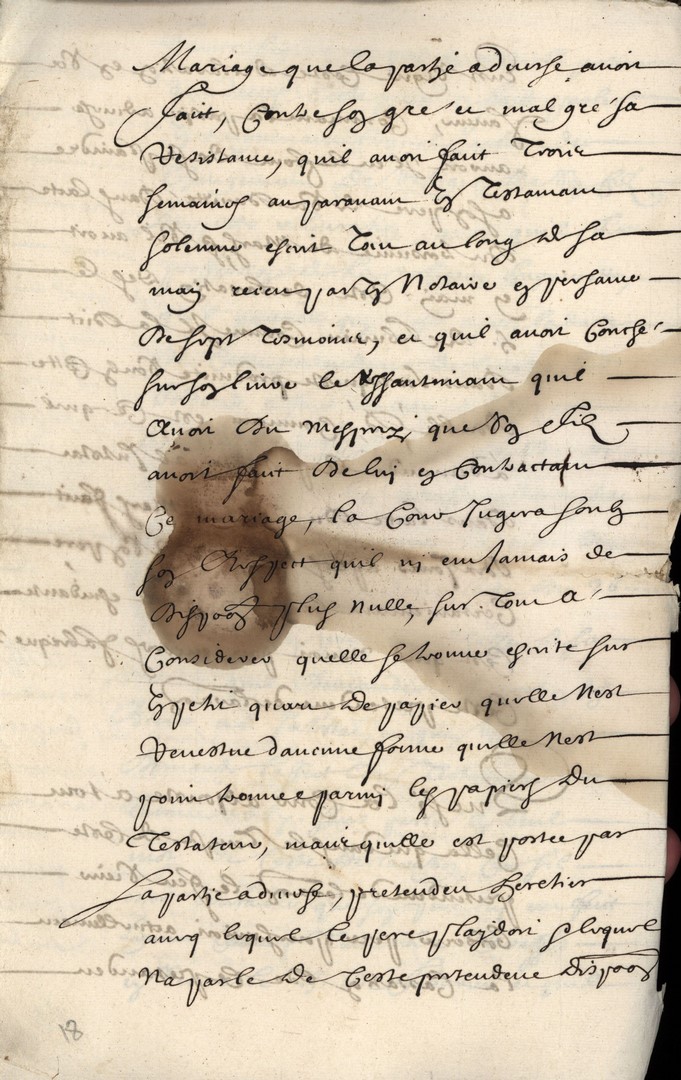 Mariage que la partie adverse avoit
faict, contre son gré et malgré sa
resistance, quil avoit faict trois
semaines auparavant un testamant
solemne escrit tout au long de sa
main receu par un notaire en presance
de sept tesmoins, et quil avoit couche
sur son livre le ressantimant quil
avoit du mespris que son filz
avoit faict de luy en contractant
ce mariage, la Cour jugera soubz
son respect quil ni eut jamais de
dispoon plus nulle, sur tout a
considerer quelle se trouve escrite sur
un petit quart de papier quelle nest
revestue daucune forme quelle nest
point trouvee parmi les papiers du
testateur, mais quelle est portee par
la partie adverse, pretendeu heretier
avec lequel le pere playdoit & lequel
na parle de ceste pretendeue dispoon
18